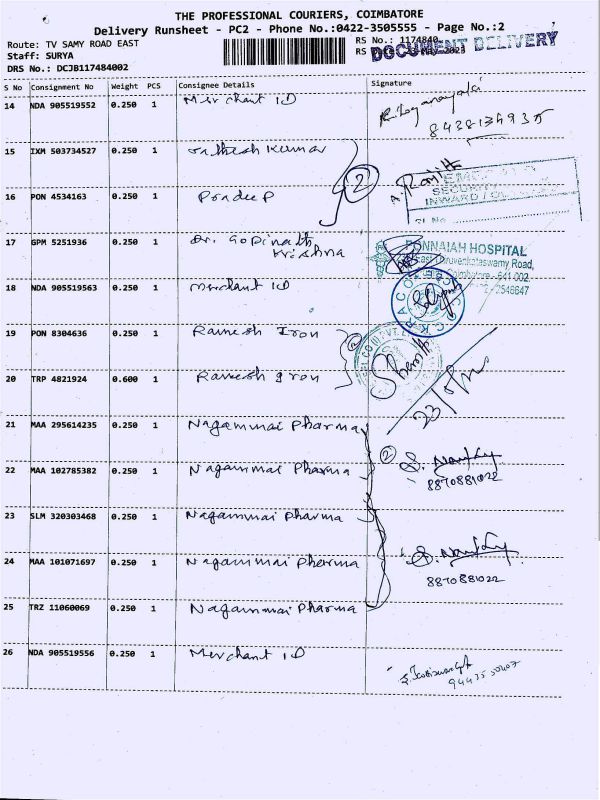 THE PROFESSIONAL COURIERS, COIMBATORE
Delivery Runsheet - PC2 - Phone No.:0422-3505555 - Page No.:2
Route: TV SAMY ROAD EAST
RS No.: 1174840
Staff: SURYA
RS
DOCUMENT DELIVERY
DRS No.: DCJB117484002
S No Consignment No Weight PCS Consignee Details Signature
14 NDA 905519552 0.250 1 Merchant ID
8438134935
15 IXM 503734527 0.250 1 Kumar
2
16 PON 4534163 0.250 1 Pradeep
A. Ranjith
SECURITY
INWARD
Sl.No
17 GPM 5251936 0.250 1 Dr. Gopinath Krishna
PONNAIAH HOSPITAL
East Thiruvenkataswamy Road,
Coimbatore - 641 002.
2546647
18 NDA 905519563 0.250 1 Merchant ID
19 PON 8304636 0.250 1 Ramesh Iron
20 TRP 4821924 0.600 1 Ramesh Iron
21 MAA 295614235 0.250 1 Nagammai Pharma
22 MAA 102785382 0.250 1 Nagammai Pharma
2
8870881022
23 SLM 320303468 0.250 1 Nagammai Pharma
24 MAA 101071697 0.250 1 Nagammai Pharma
8870881022
25 TRZ 11060069 0.250 1 Nagammai Pharma
26 NDA 905519556 0.250 1 Merchant ID